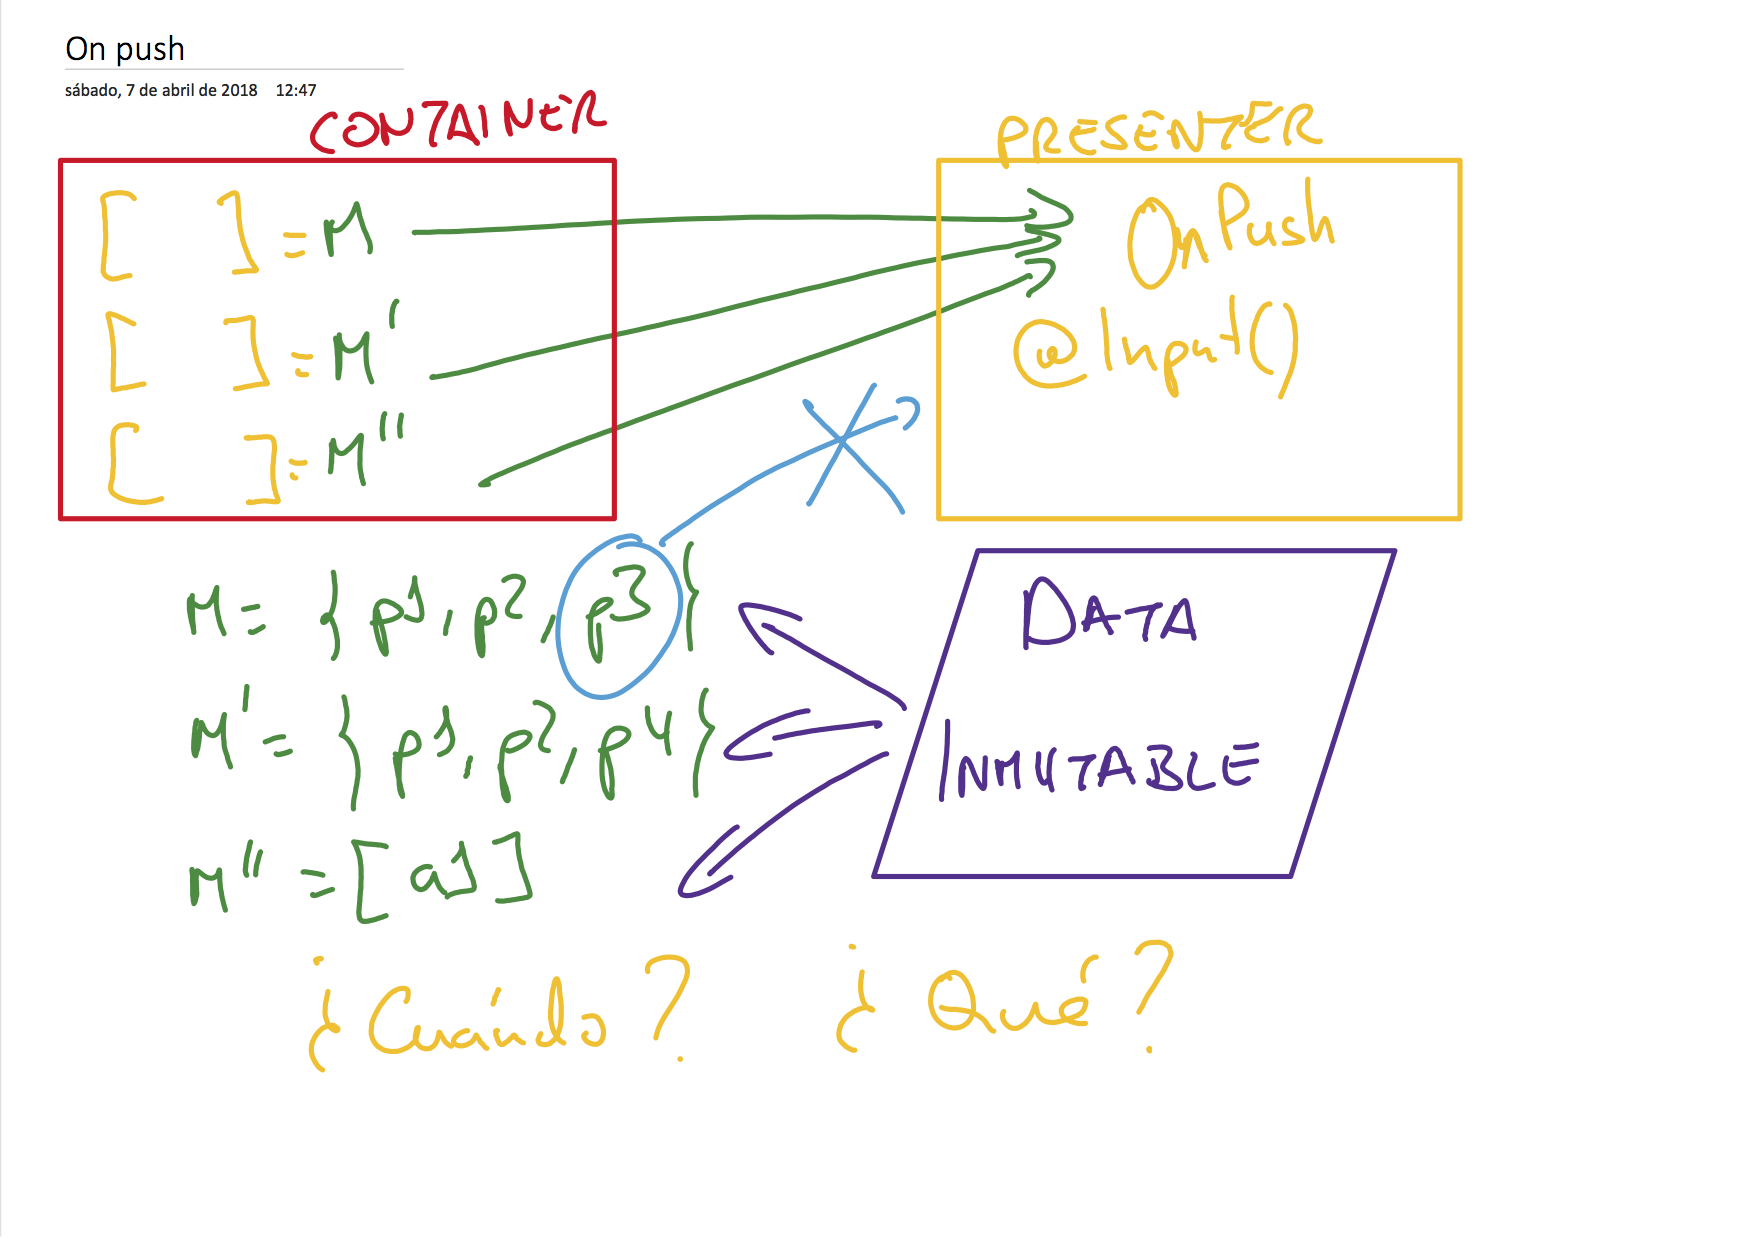 On push
sábado, 7 de abril de 2018 12:47
CONTAINER
PRESENTER
[ ] = M
[ ] = M'
[ ] = M''
OnPush
@Input()
M = { p1, p2, p3 }
M' = { p1, p2, p4 }
M'' = [ a1 ]
DATA
INMUTABLE
¿Cuándo? ¿Qué?